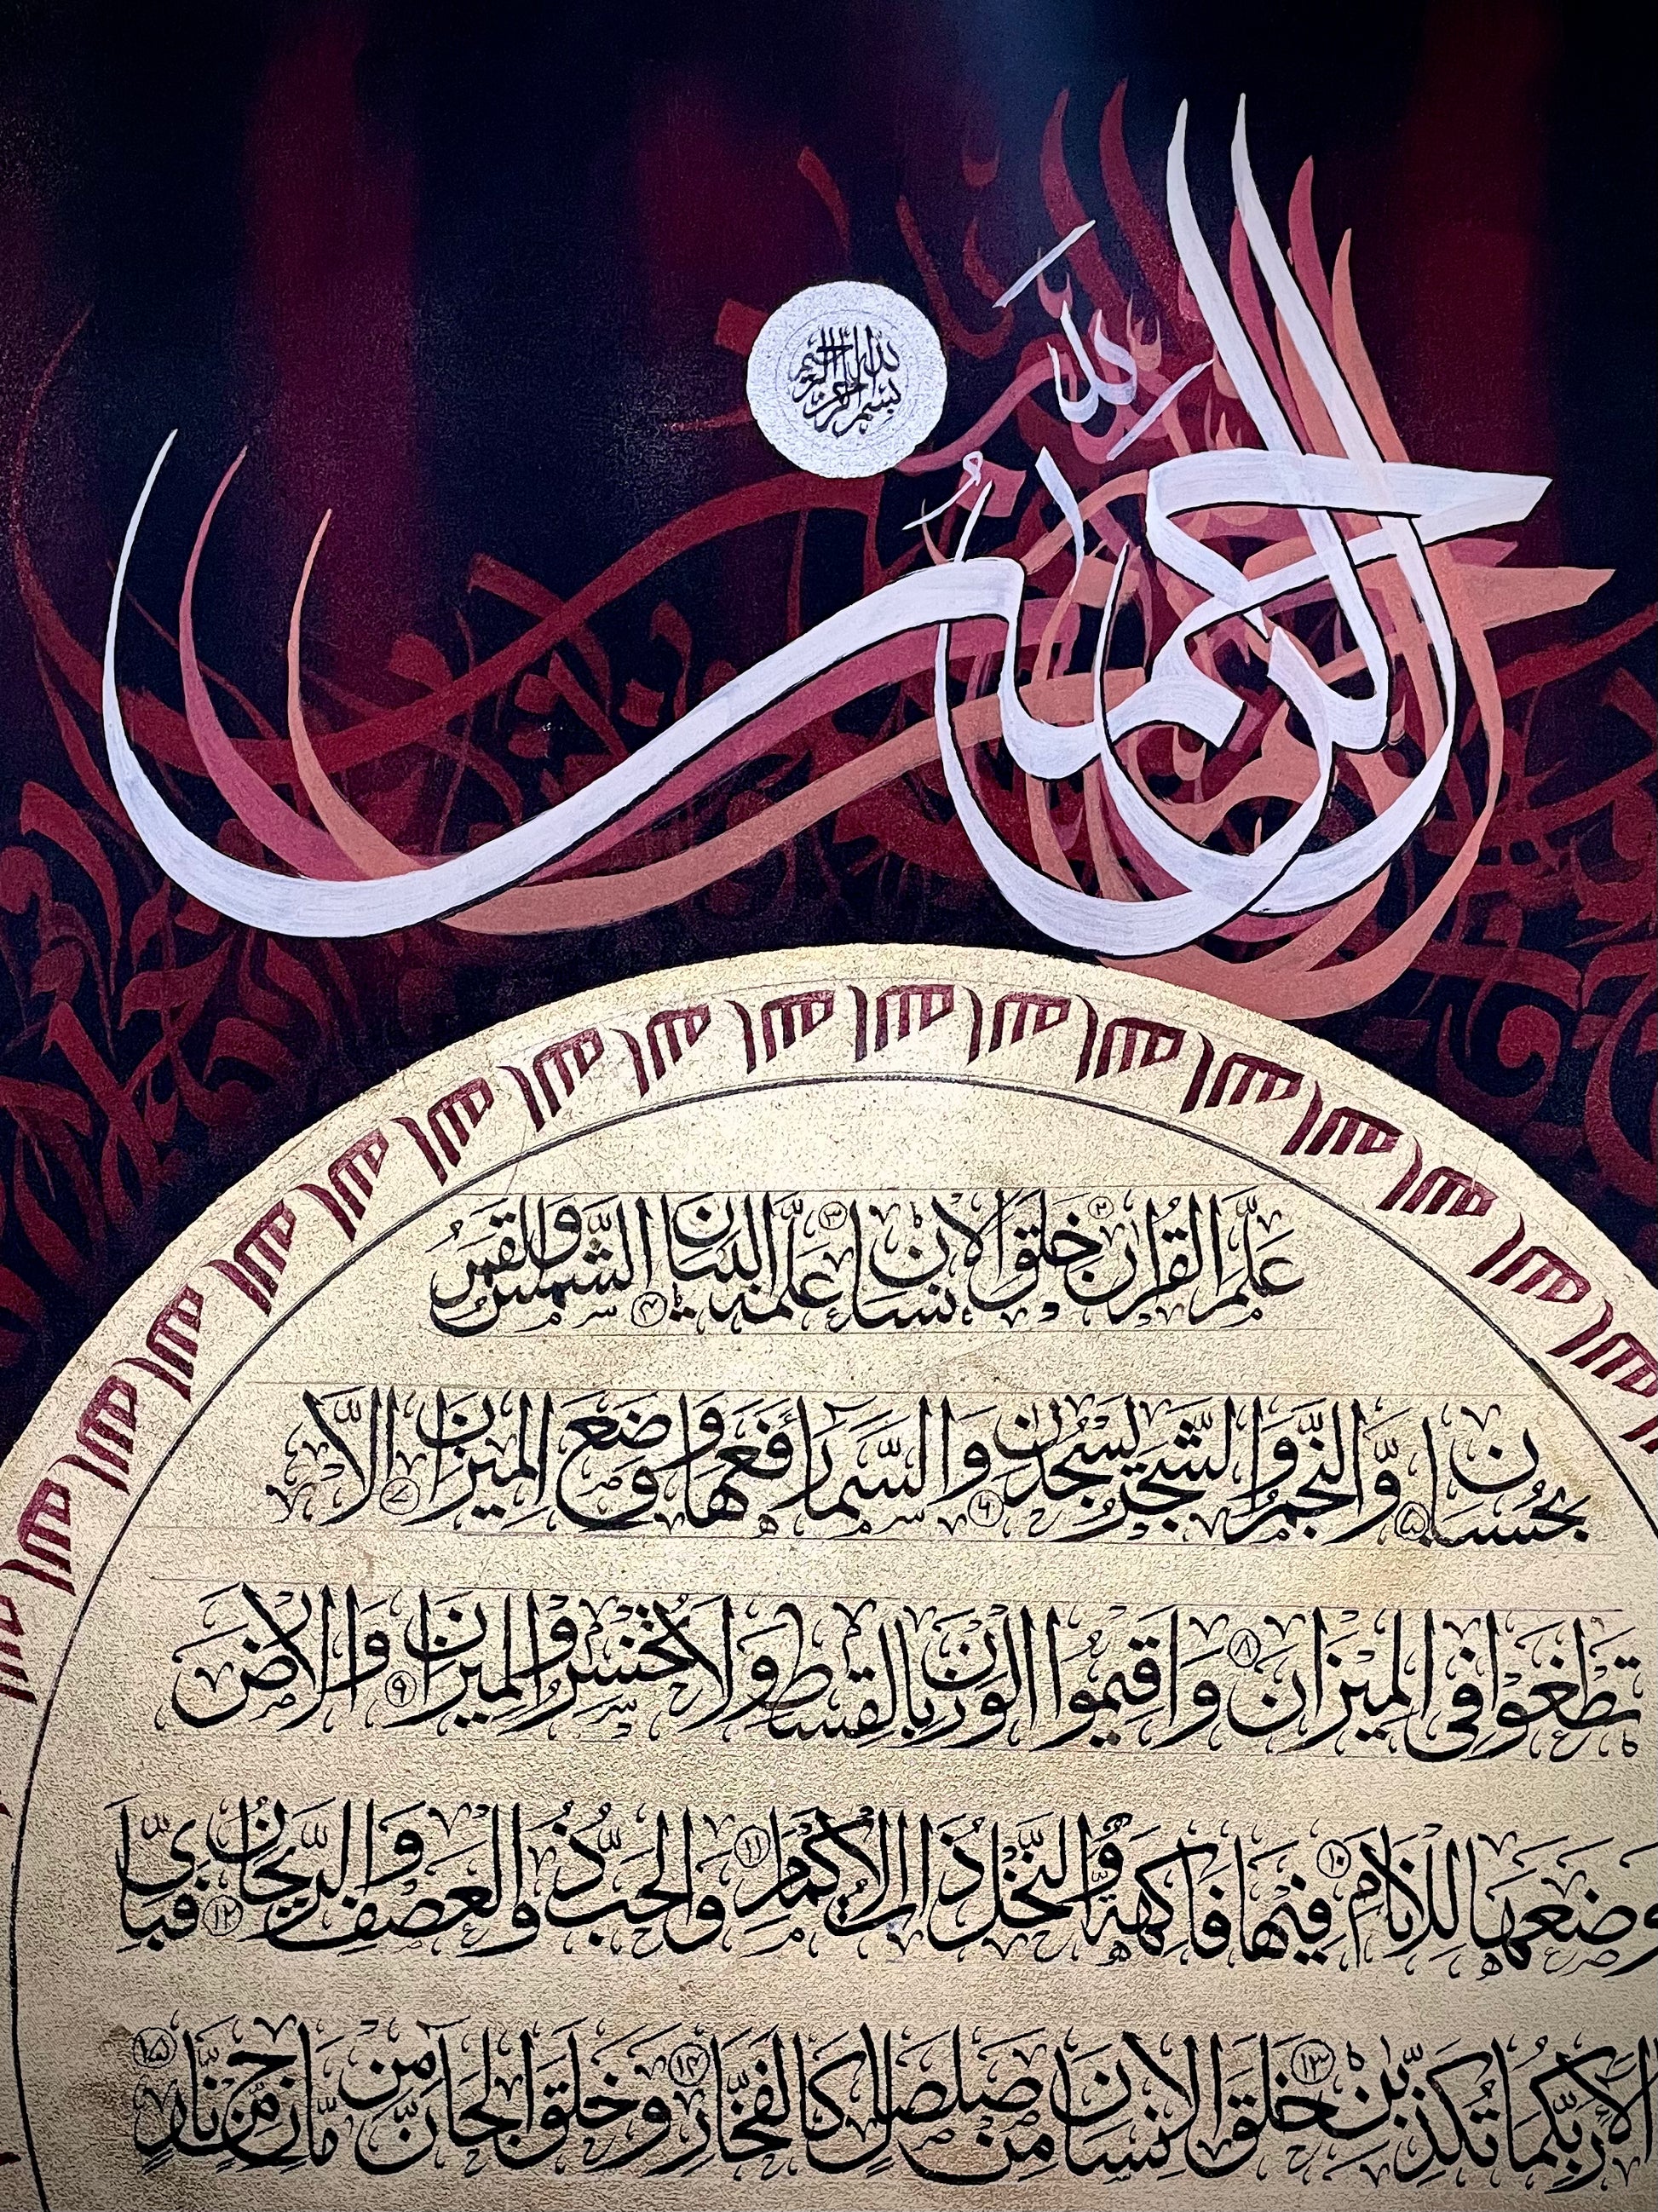 بسم الله الرحمن الرحيم
الرحمن
عَلَّمَ الْقُرْاٰنَ ٢ خَلَقَ الْاِنْسَانَ ٣ عَلَّمَهُ الْبَيَانَ ٤ اَلشَّمْسُ وَالْقَمَرُ
بِحُسْبَانٍ ٥ وَّالنَّجْمُ وَالشَّجَرُ يَسْجُدٰنِ ٦ وَالسَّمَآءَ رَفَعَهَا وَوَضَعَ الْمِيْزَانَ ٧ اَلَّا
تَطْغَوْا فِى الْمِيْزَانِ ٨ وَاَقِيْمُوا الْوَزْنَ بِالْقِسْطِ وَلَا تُخْسِرُوا الْمِيْزَانَ ٩ وَالْاَرْضَ
وَضَعَهَا لِلْاَنَامِ ١٠ فِيْهَا فَاكِهَةٌ وَّالنَّخْلُ ذَاتُ الْاَكْمَامِ ١١ وَالْحَبُّ ذُو الْعَصْفِ وَالرَّيْحَانُ ١٢ فَبِاَىِّ
اٰلَآءِ رَبِّكُمَا تُكَذِّبٰنِ ١٣ خَلَقَ الْاِنْسَانَ مِنْ صَلْصَالٍ كَالْفَخَّارِ ١٤ وَخَلَقَ الْجَآنَّ مِنْ مَّارِجٍ مِّنْ نَّارٍ ١٥